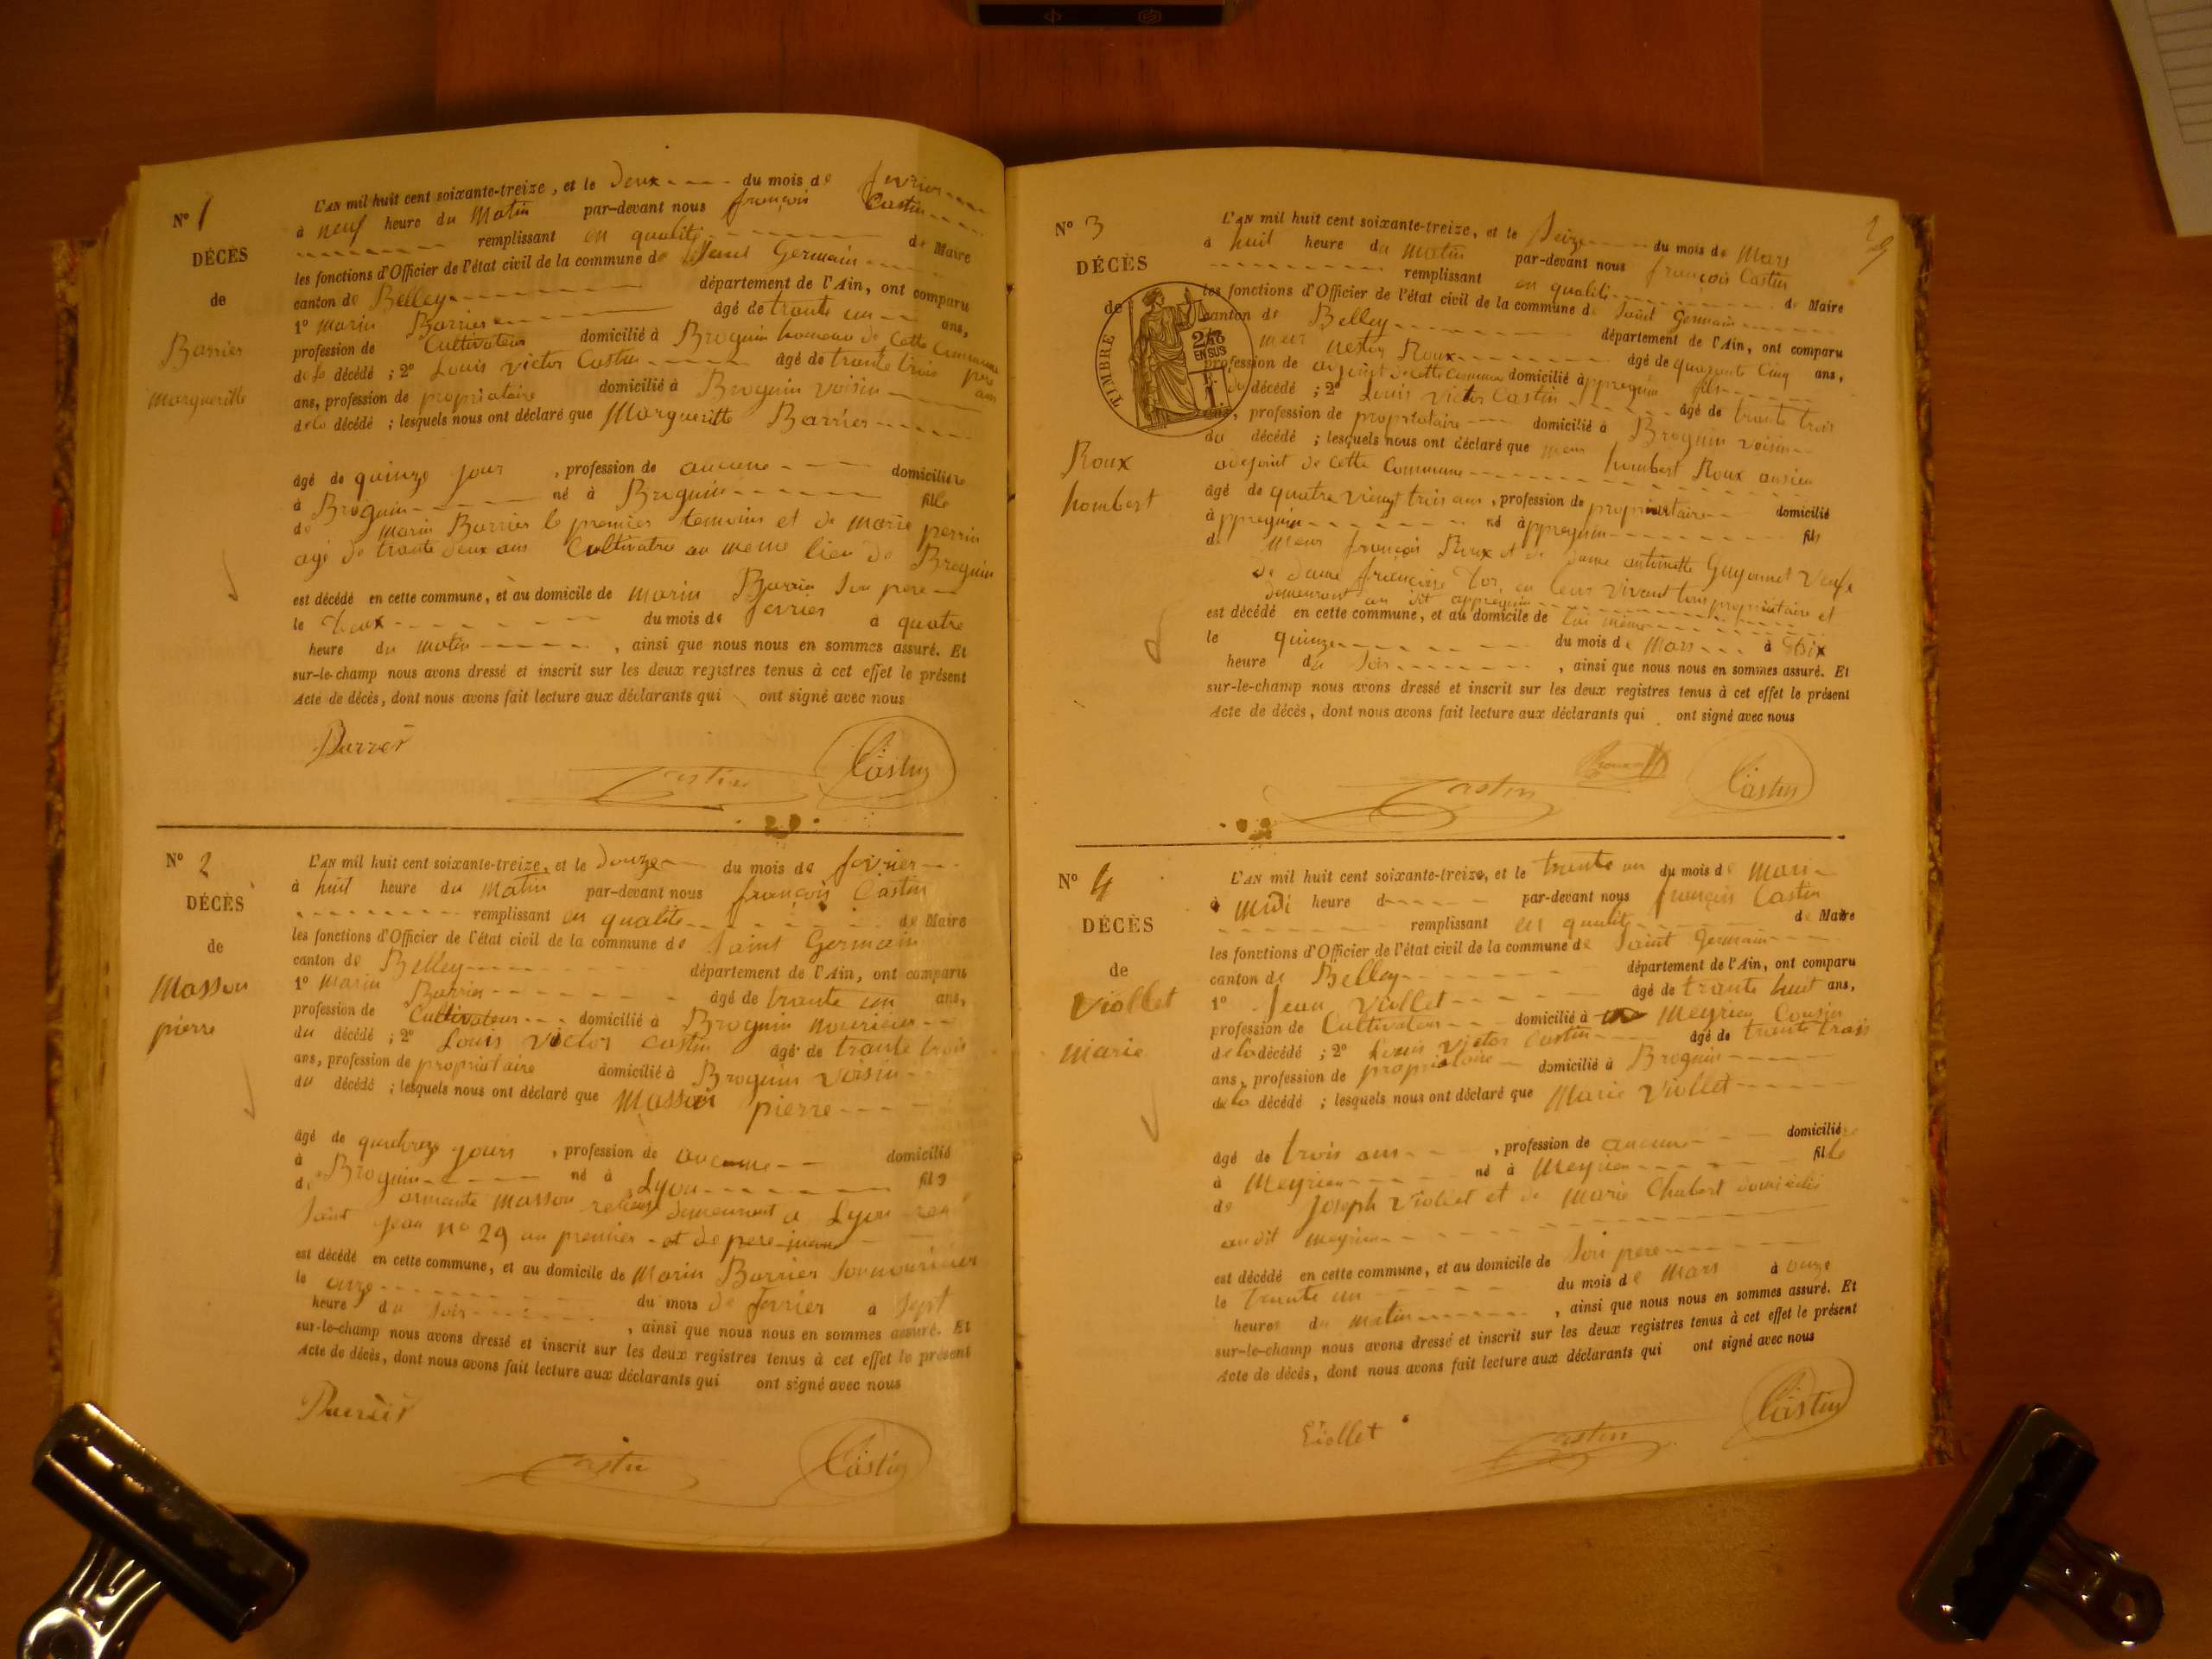 N° 1
DÉCÈS
de
Barrier
margueritte
L'AN mil huit cent soixante-treize, et le Deux du mois de fevrier
à neuf heure du Matin par-devant nous françois Castin
remplissant en qualité de Maire
les fonctions d'Officier de l'état civil de la commune de Saint Germain
canton de Belley département de l'Ain, ont comparu
1° Marin Barrier âgé de trante un ans,
profession de Cultivateur domicilié à Brognin hameau de Cette Commune
de la décédé ; 2° Louis victor Castin âgé de trante trois
ans, profession de propriataire domicilié à Brognin voisin
de la décédé ; lesquels nous ont déclaré que Margueritte Barrier
âgé de quinze jour, profession de aucune domiciliée
à Brognin né à Brognin fille
de Marin Barrier le premier temoins et de marie perrin
agé de trante deux ans Cultivatre au meme lieu de Brognin
est décédé en cette commune, et au domicile de marin Barrier Son pere
le Deux du mois de fevrier à quatre
heure du matin, ainsi que nous nous en sommes assuré. Et
sur-le-champ nous avons dressé et inscrit sur les deux registres tenus à cet effet le présent
Acte de décès, dont nous avons fait lecture aux déclarants qui ont signé avec nous
Barrier
Castin
Castin
N° 2
DÉCÈS
de
Masson
pierre
L'AN mil huit cent soixante-treize, et le Douze du mois de fevrier
à huit heure du Matin par-devant nous françois Castin
remplissant en qualite de Maire
les fonctions d'Officier de l'état civil de la commune de Saint Germain
canton de Belley département de l'Ain, ont comparu
1° Marin Barrier âgé de trante un ans,
profession de Cultivateur domicilié à Brognin nouricier
du décédé ; 2° Louis victor Castin âgé de trante trois
ans, profession de propriataire domicilié à Brognin voisin
du décédé ; lesquels nous ont déclaré que Masson pierre
âgé de quatorze jours, profession de aucune domicilié
à Brognin né à Lyon fils
de armante Masson demeurant a Lyon
Saint Jean n° 29 au premier et de pere
est décédé en cette commune, et au domicile de Marin Barrier Son nouricier
le onze du mois de fevrier a Sept
heure du Soir, ainsi que nous nous en sommes assuré. Et
sur-le-champ nous avons dressé et inscrit sur les deux registres tenus à cet effet le présent
Acte de décès, dont nous avons fait lecture aux déclarants qui ont signé avec nous
Barrier
Castin
Castin
29
N° 3
DÉCÈS
de
TIMBRE
2/10
EN SUS
Roux
hombert
L'AN mil huit cent soixante-treize, et le Seize du mois de Mars
à huit heure du matin par-devant nous françois Castin
remplissant en qualité de Maire
les fonctions d'Officier de l'état civil de la commune de Saint Germain
canton de Belley département de l'Ain, ont comparu
Roux âgé de quarante Cinq ans,
profession de adjoint de cette commune domicilié à appregnin fils
du décédé ; 2° Louis victor Castin âgé de trante trois
ans, profession de propriataire domicilié à Brognin voisin
du décédé ; lesquels nous ont déclaré que hombert Roux ansien
adejoint de cette Commune
âgé de quatre vingt trois ans, profession de propriataire domicilié
à appregnin né à appregnin fils
de françois Roux et de Dame antoinette Guyonnet Veuf
de Dame françoise en leur vivant tous propriataire et
demeurant au dit appregnin
est décédé en cette commune, et au domicile de lui meme
le quinze du mois de Mars à Six
heure du Soir, ainsi que nous nous en sommes assuré. Et
sur-le-champ nous avons dressé et inscrit sur les deux registres tenus à cet effet le présent
Acte de décès, dont nous avons fait lecture aux déclarants qui ont signé avec nous
Castin
Castin
N° 4
DÉCÈS
de
Viollet
marie
L'AN mil huit cent soixante-treize, et le trante un du mois de mars
à Midi heure d par-devant nous françois Castin
remplissant en qualité de Maire
les fonctions d'Officier de l'état civil de la commune de Saint Germain
canton de Belley département de l'Ain, ont comparu
1° Jean Viollet âgé de trante huit ans,
profession de Cultivateur domicilié à Meyrieu Cousin
de la décédé ; 2° Louis victor Castin âgé de trante trois
ans, profession de propriataire domicilié à Brognin
de la décédé ; lesquels nous ont déclaré que Marie Viollet
âgé de trois ans, profession de aucune domiciliée
à Meyrieu né à Meyrieu fille
de Joseph Viollet et de Marie Chabert domicilié
au dit meyrieu
est décédé en cette commune, et au domicile de Son pere
le trante un du mois de Mars à onze
heures du matin, ainsi que nous nous en sommes assuré. Et
sur-le-champ nous avons dressé et inscrit sur les deux registres tenus à cet effet le présent
Acte de décès, dont nous avons fait lecture aux déclarants qui ont signé avec nous
Viollet
Castin
Castin